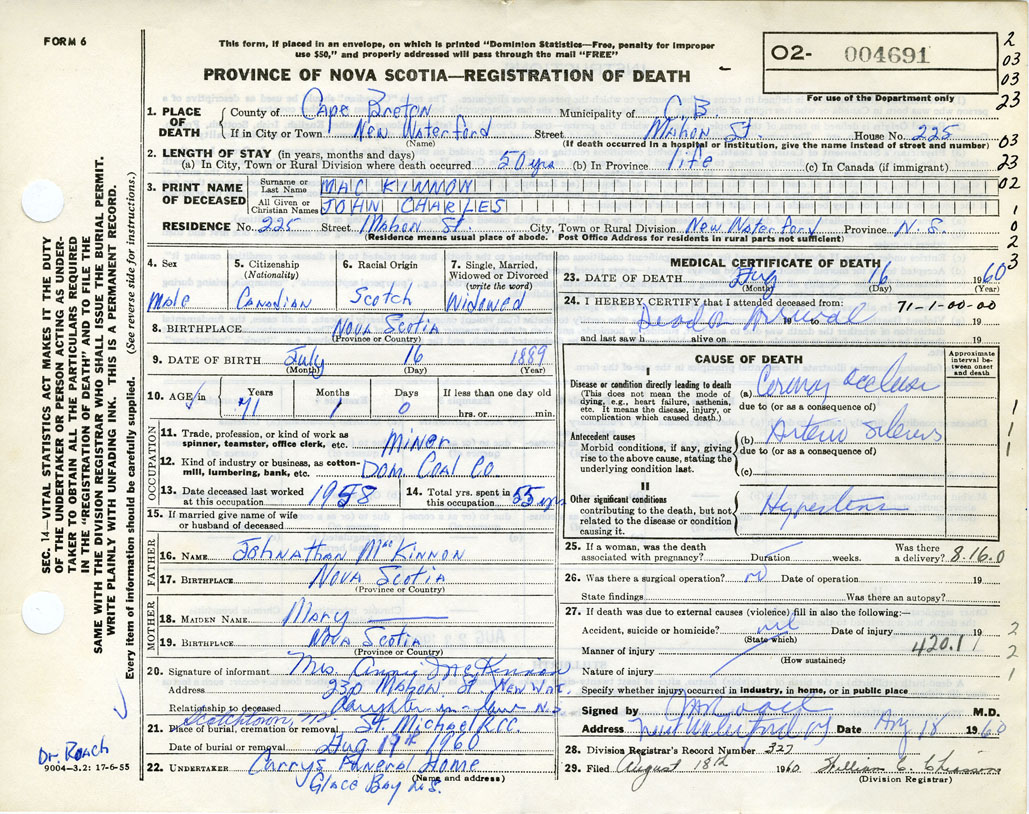 FORM 6
This form, if placed in an envelope, on which is printed "Dominion Statistics—Free, penalty for improper
use $50," and properly addressed will pass through the mail "FREE"
PROVINCE OF NOVA SCOTIA—REGISTRATION OF DEATH
02- 004691
For use of the Department only
2
03
03
23
03
23
02
1
0
2
3
1. PLACE OF DEATH County of Cape Breton Municipality of C.B.
If in City or Town New Waterford Street Mahon St. House No. 225
(Name) (If death occurred in a hospital or institution, give the name instead of street and number)
2. LENGTH OF STAY (in years, months and days)
(a) In City, Town or Rural Division where death occurred 50 yrs (b) In Province life (c) In Canada (if immigrant)
3. PRINT NAME OF DECEASED Surname or Last Name MAC KINNON
All Given or Christian Names JOHN CHARLES
RESIDENCE No. 225 Street Mahon St. City, Town or Rural Division New Waterford Province N.S.
(Residence means usual place of abode. Post Office Address for residents in rural parts not sufficient)
4. Sex 5. Citizenship (Nationality) 6. Racial Origin 7. Single, Married, Widowed or Divorced (write the word)
Male Canadian Scotch Widowed
8. BIRTHPLACE Nova Scotia
(Province or Country)
9. DATE OF BIRTH July 16 1889
(Month) (Day) (Year)
10. AGE in Years Months Days If less than one day old
71 1 0 hrs. or min.
OCCUPATION
11. Trade, profession, or kind of work as spinner, teamster, office clerk, etc. Miner
12. Kind of industry or business, as cotton-mill, lumbering, bank, etc. Dom. Coal Co
13. Date deceased last worked at this occupation 1958 14. Total yrs. spent in this occupation 55 yrs
15. If married give name of wife or husband of deceased
FATHER
16. NAME Johnathan McKinnon
17. BIRTHPLACE Nova Scotia
(Province or Country)
MOTHER
18. MAIDEN NAME Mary
19. BIRTHPLACE Nova Scotia
(Province or Country)
20. Signature of informant Mrs. Annie McKinnon
Address 230 Mahon St New Wat.
Relationship to deceased daughter-in-law N.S.
Scotchtown, N.S.
21. Place of burial, cremation or removal St Michael R.C.C.
Date of burial or removal Aug 19th 1960
22. UNDERTAKER Currys Funeral Home
(Name and address)
Glace Bay N.S.
MEDICAL CERTIFICATE OF DEATH
23. DATE OF DEATH Aug 16 1960
(Month) (Day) (Year)
24. I HEREBY CERTIFY that I attended deceased from: 71-1-00-00
Dead on Arrival 19 to 19
and last saw h alive on 19
CAUSE OF DEATH
Approximate interval between onset and death
I
Disease or condition directly leading to death
(This does not mean the mode of dying, e.g., heart failure, asthenia, etc. It means the disease, injury, or complication which caused death.)
(a) Coronary occlusion
due to (or as a consequence of)
Antecedent causes
Morbid conditions, if any, giving rise to the above cause, stating the underlying condition last.
(b) Arterio Sclerosis
due to (or as a consequence of)
(c)
1
1
1
II
Other significant conditions
contributing to the death, but not related to the disease or condition causing it.
Hypertension
25. If a woman, was the death associated with pregnancy? Duration weeks. Was there a delivery? 8.16.0
26. Was there a surgical operation? no Date of operation 19
State findings Was there an autopsy?
27. If death was due to external causes (violence) fill in also the following:—
Accident, suicide or homicide? nil Date of injury 19
(State which)
Manner of injury 420.1
(How sustained)
Nature of injury
2
2
1
Specify whether injury occurred in industry, in home, or in public place
Signed by M.D.
Address New Waterford NS Date Aug 18 1960
28. Division Registrar's Record Number 327
29. Filed August 18th 1960 William C. Chiasson
(Division Registrar)
SEC. 14—VITAL STATISTICS ACT MAKES IT THE DUTY
OF THE UNDERTAKER OR PERSON ACTING AS UNDER-
TAKER TO OBTAIN ALL THE PARTICULARS REQUIRED
IN THE "REGISTRATION OF DEATH" AND TO FILE THE
SAME WITH THE DIVISION REGISTRAR WHO SHALL ISSUE THE BURIAL PERMIT.
WRITE PLAINLY WITH UNFADING INK. THIS IS A PERMANENT RECORD.
Every item of information should be carefully supplied. (See reverse side for instructions.)
Dr. Roach
9004—3.2: 17-6-55